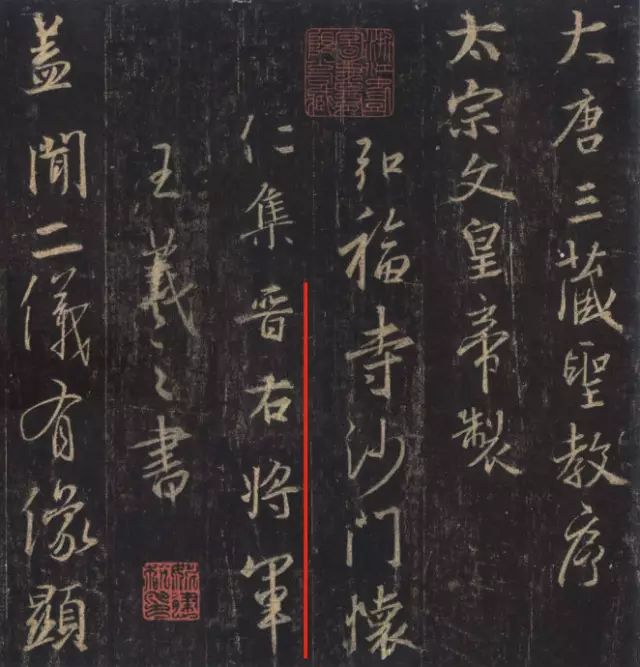 大唐三藏聖教序
太宗文皇帝製
弘福寺沙門懷
仁集晋右将軍
王羲之書
蓋聞二儀有像顯